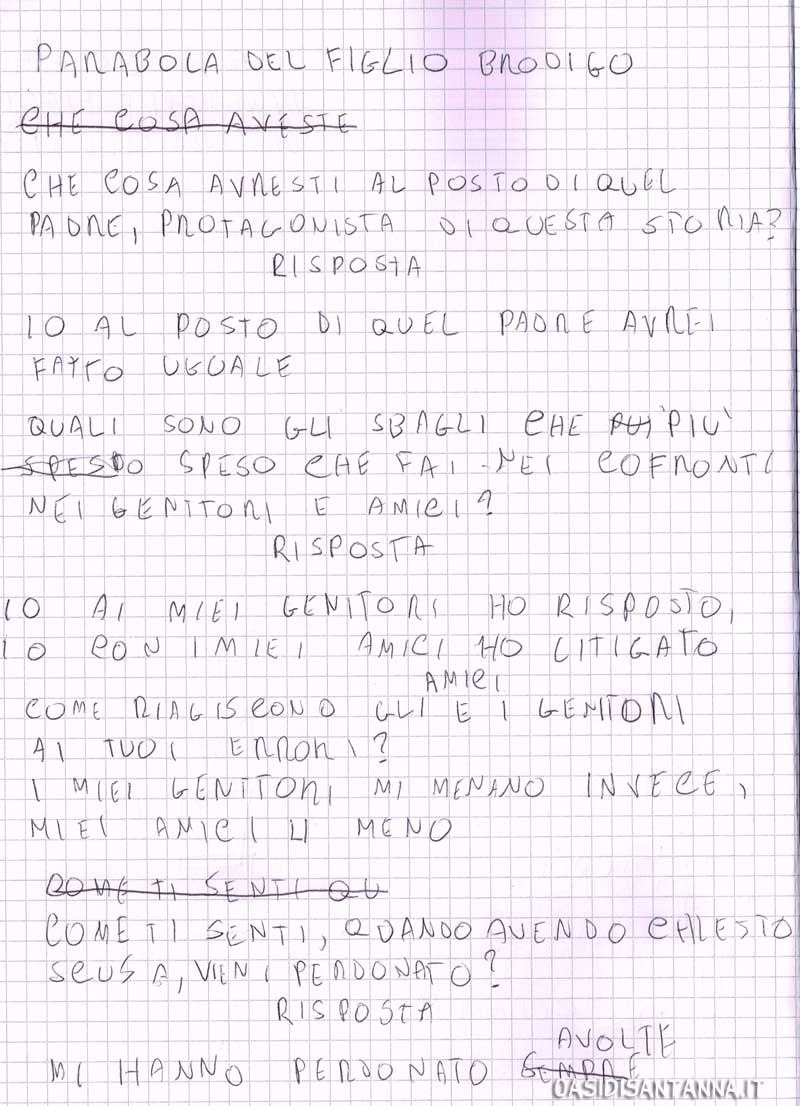 PARABOLA DEL FIGLIO BRODIGO
CHE COSA AVESTE
CHE COSA AVRESTI AL POSTO DI QUEL
PADRE, PROTAGONISTA DI QUESTA STORIA?
RISPOSTA
IO AL POSTO DI QUEL PADRE AVREI
FATTO UGUALE
QUALI SONO GLI SBAGLI CHE PIU'
SPESDO SPESO CHE FAI NEI COFRONTI
NEI GENITORI E AMICI?
RISPOSTA
IO AI MIEI GENITORI HO RISPOSTO,
IO CON I MIEI AMICI HO LITIGATO
AMICI
COME RIAGISCONO GLI E I GENITORI
AI TUOI ERRORI?
I MIEI GENITORI MI MENANO INVECE,
MIEI AMICI LI MENO
COME TI SENTI QU
COME TI SENTI, QUANDO AVENDO CHIESTO
SCUSA, VIENI PERDONATO?
RISPOSTA
AVOLTE
MI HANNO PERDONATO SEMPRE
OASIDISANTANNA.IT